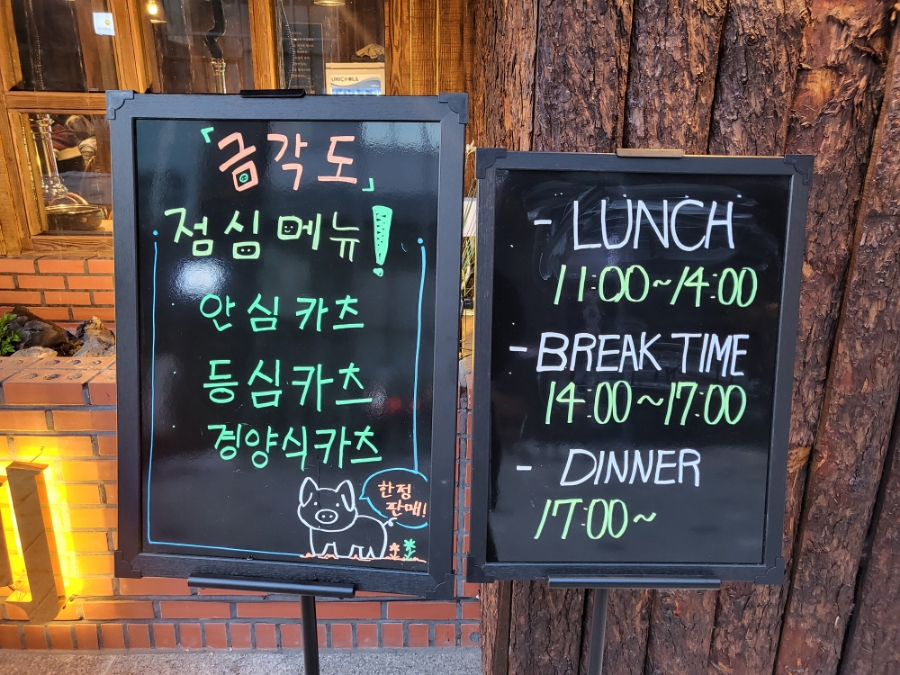 「금각도」
점심메뉴!
안심카츠
등심카츠
경양식카츠
한정
판매!
- LUNCH
11:00~14:00
- BREAK TIME
14:00~17:00
- DINNER
17:00~